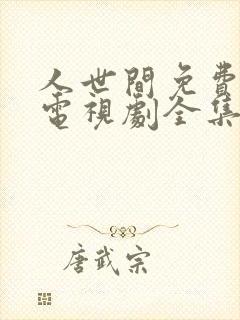 人世間免費
電視劇全集
唐武宗